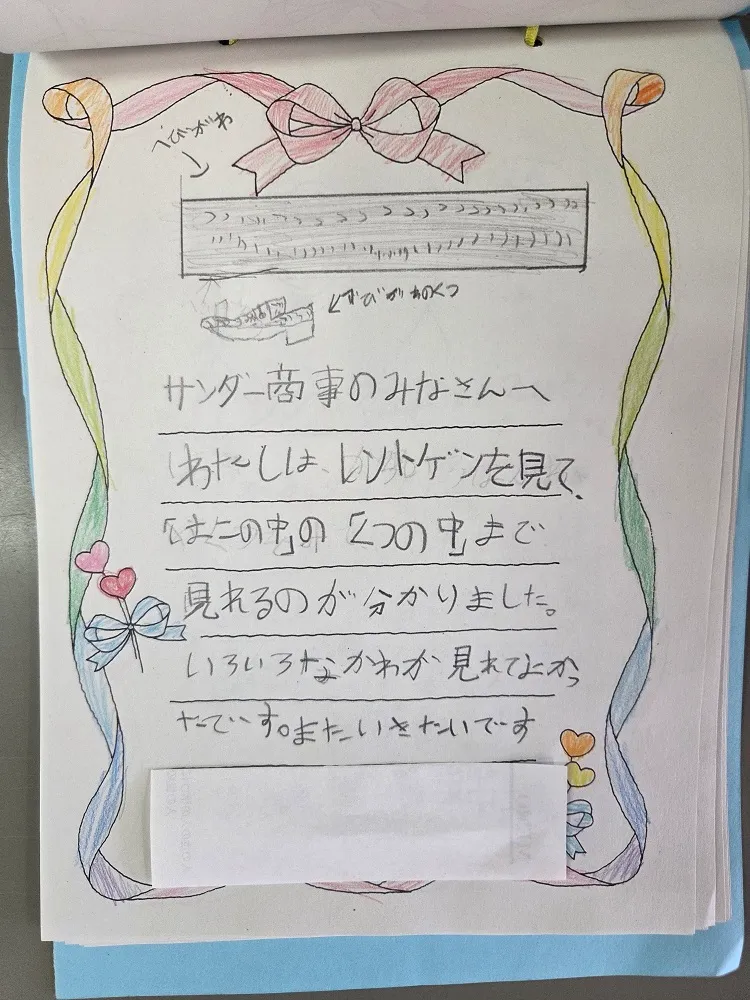 へびがわ
へびがわのくつ
サンダー商事のみなさんへ
わたしは、レントゲンを見て、
「はこの中」の「くつの中」まで
見れるのが分かりました。
いろいろなかわか見れてよかっ
たでいす。またいきたいでです